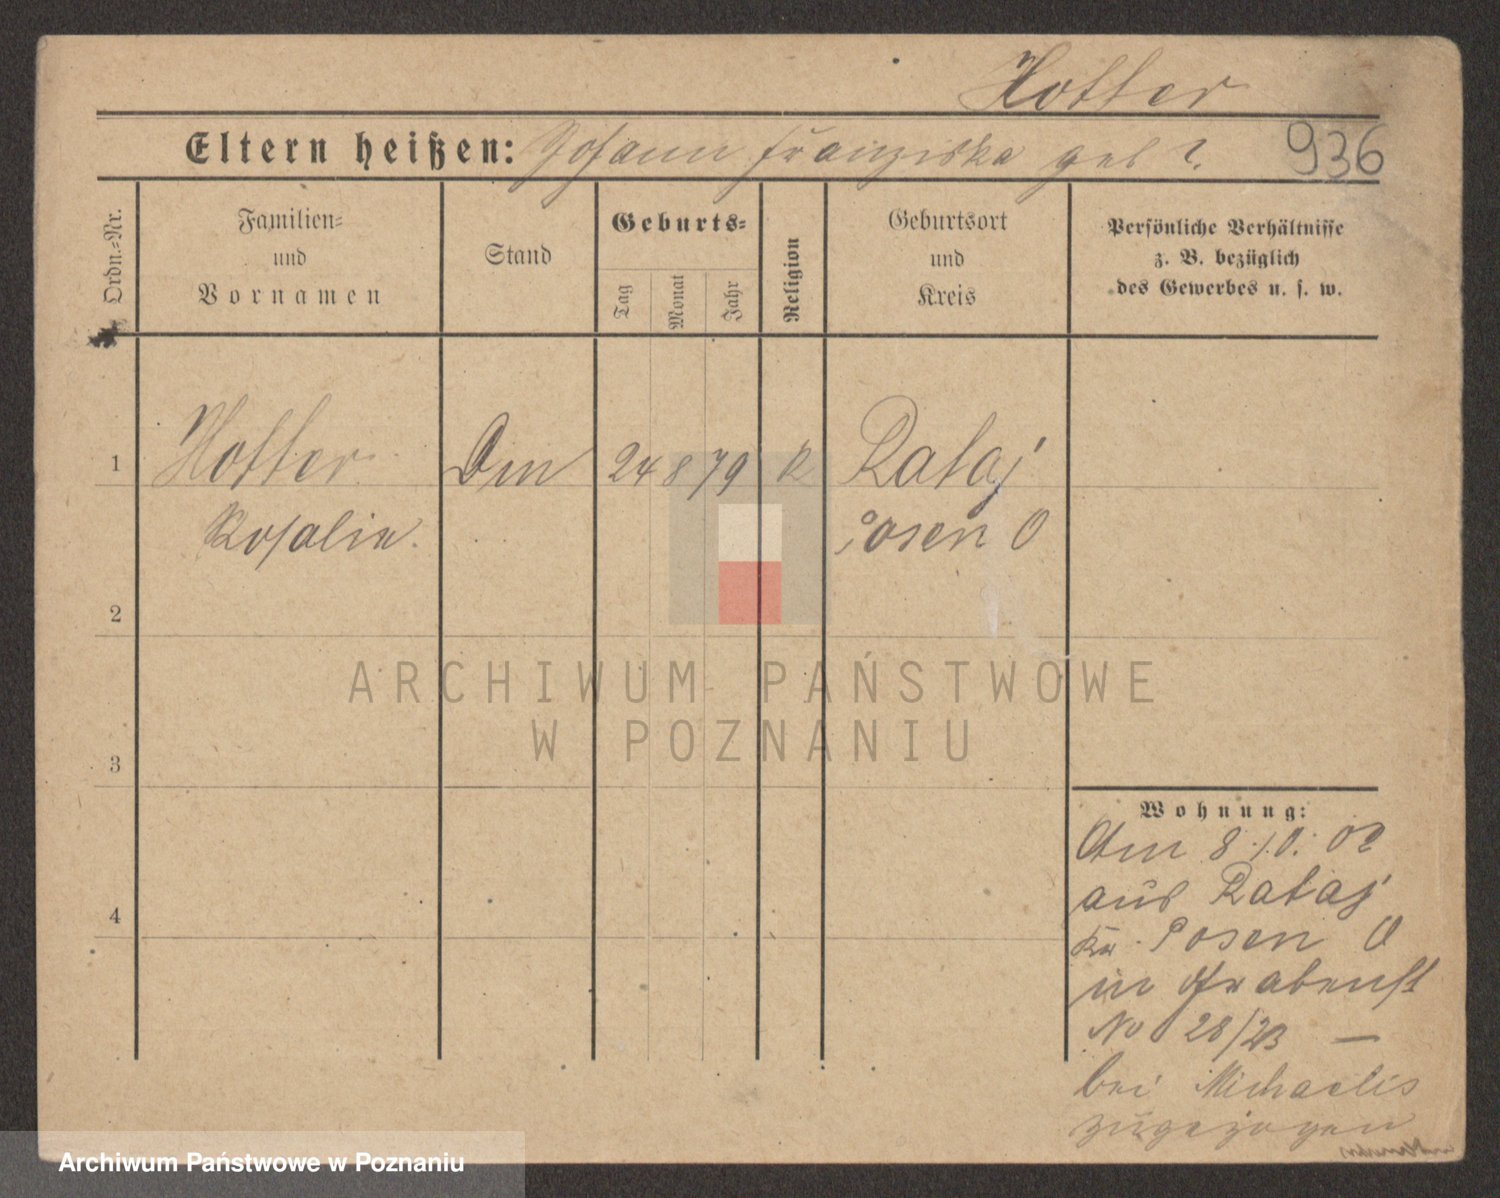 Hotter
Eltern heißen: Johann Franziska geb ?.
936
Ordn.=Nr.
Familien=
und
Vornamen
Stand
Geburts=
Tag
Monat
Jahr
Religion
Geburtsort
und
Kreis
Persönliche Verhältnisse
z. B. bezüglich
des Gewerbes u. s. w.
1 Hotter Dm 24 8 79 K Rataj
Rosalie. Posen O
2
ARCHIWUM PAŃSTWOWE
W POZNANIU
3
Wohnung:
Am 8.10.02
aus Rataj
Kr. Posen O
4
in Grabenst
No 28/23 —
bei Michaelis
zugezogen
Archiwum Państwowe w Poznaniu